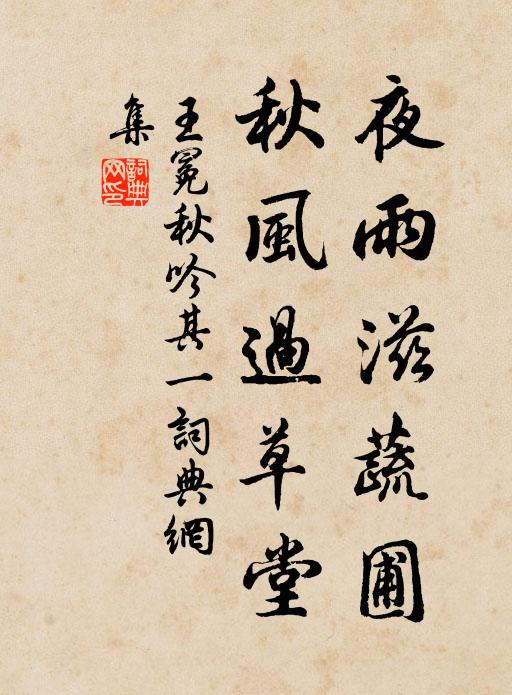 夜雨滋蔬圃
秋風過草堂
王冕秋吟其一詞典網
集
詞典
网印